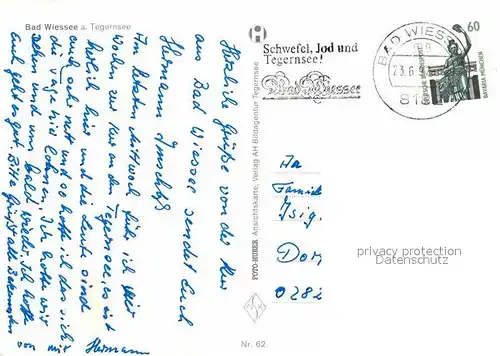 Bad Wiessee a. Tegernsee
Herzliche Grüße von der Kur
aus Bad Wiessee sendet Euch
Hermann
Am letzten Mittwoch fuhr ich vier
Wochen zur Kur an den Tegernsee, es ist
herlich hier und die Leute sind
auch sehr nett und so hoffe ich das sich
die Tage lohnen. Ich hoffe wir
sehen uns bald wieder. Ich hoffe
auch geht es gut. Bitte grüßt alle Bekannten
von mir Hermann
FOTO-HUBER Ansichtskarte, Verlag AH Bildagentur Tegernsee
Nr. 62
Schwefel, Jod und
Tegernsee!
Bad Wiessee
BAD WIESSEE
23.6
60
DEUTSCHE BUNDESPOST
BAVARIA MÜNCHEN
An
Familie
Isig.
Dom
0282
privacy protection
Datenschutz